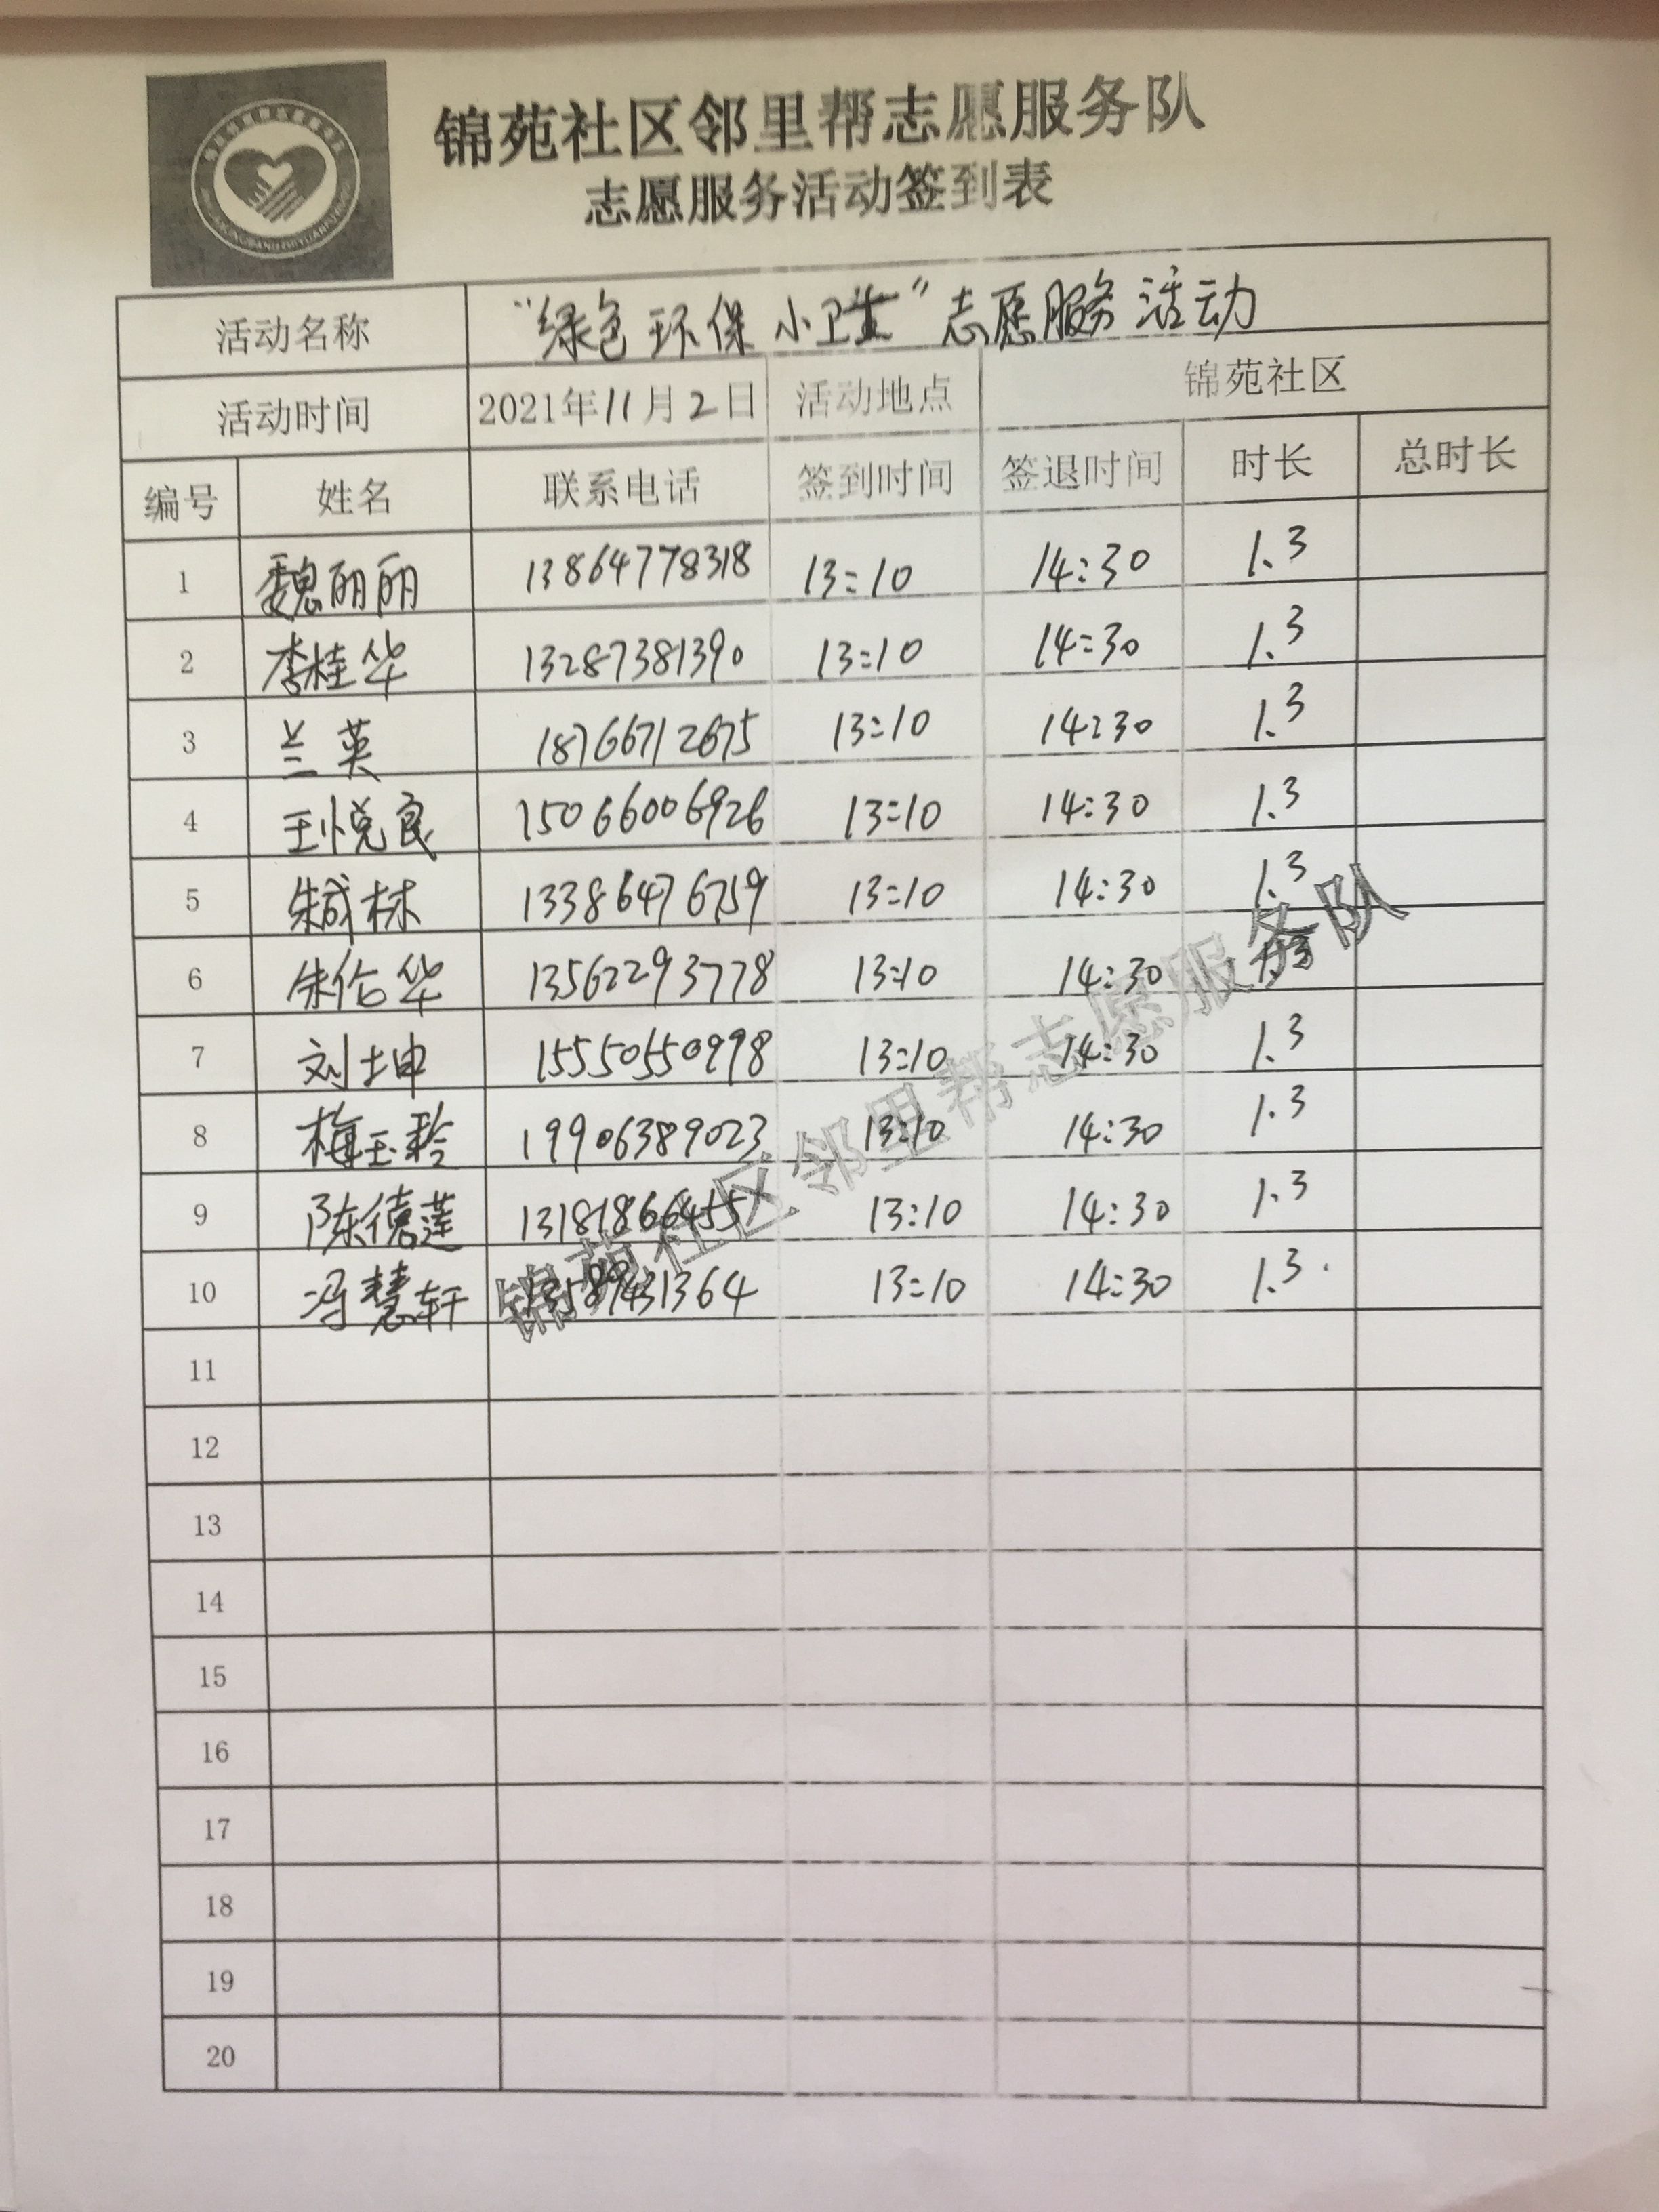 锦苑社区邻里帮志愿服务队
志愿服务活动签到表
活动名称 “绿色环保小卫生”志愿服务活动
活动时间 2021年11月2日 活动地点 锦苑社区
编号 姓名 联系电话 签到时间 签退时间 时长 总时长
1 魏丽丽 13864778318 13:10 14:30 1.3
2 李桂华 13287381390 13:10 14:30 1.3
3 兰英 18766712675 13:10 14:30 1.3
4 王悦良 15066006926 13:10 14:30 1.3
5 朱成林 13386476759 13:10 14:30 1.3
6 朱伦华 13562293778 13:10 14:30 1.3
7 刘士坤 15550550998 13:10 14:30 1.3
8 梅玉玲 19906389023 13:10 14:30 1.3
9 陈德莲 13181866455 13:10 14:30 1.3
10 冯慧轩 13589431364 13:10 14:30 1.3
11
12
13
14
15
16
17
18
19
20
锦苑社区邻里帮志愿服务队